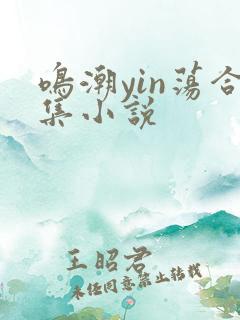 鸣潮yin荡合
集小说
王昭君
未经同意禁止转载